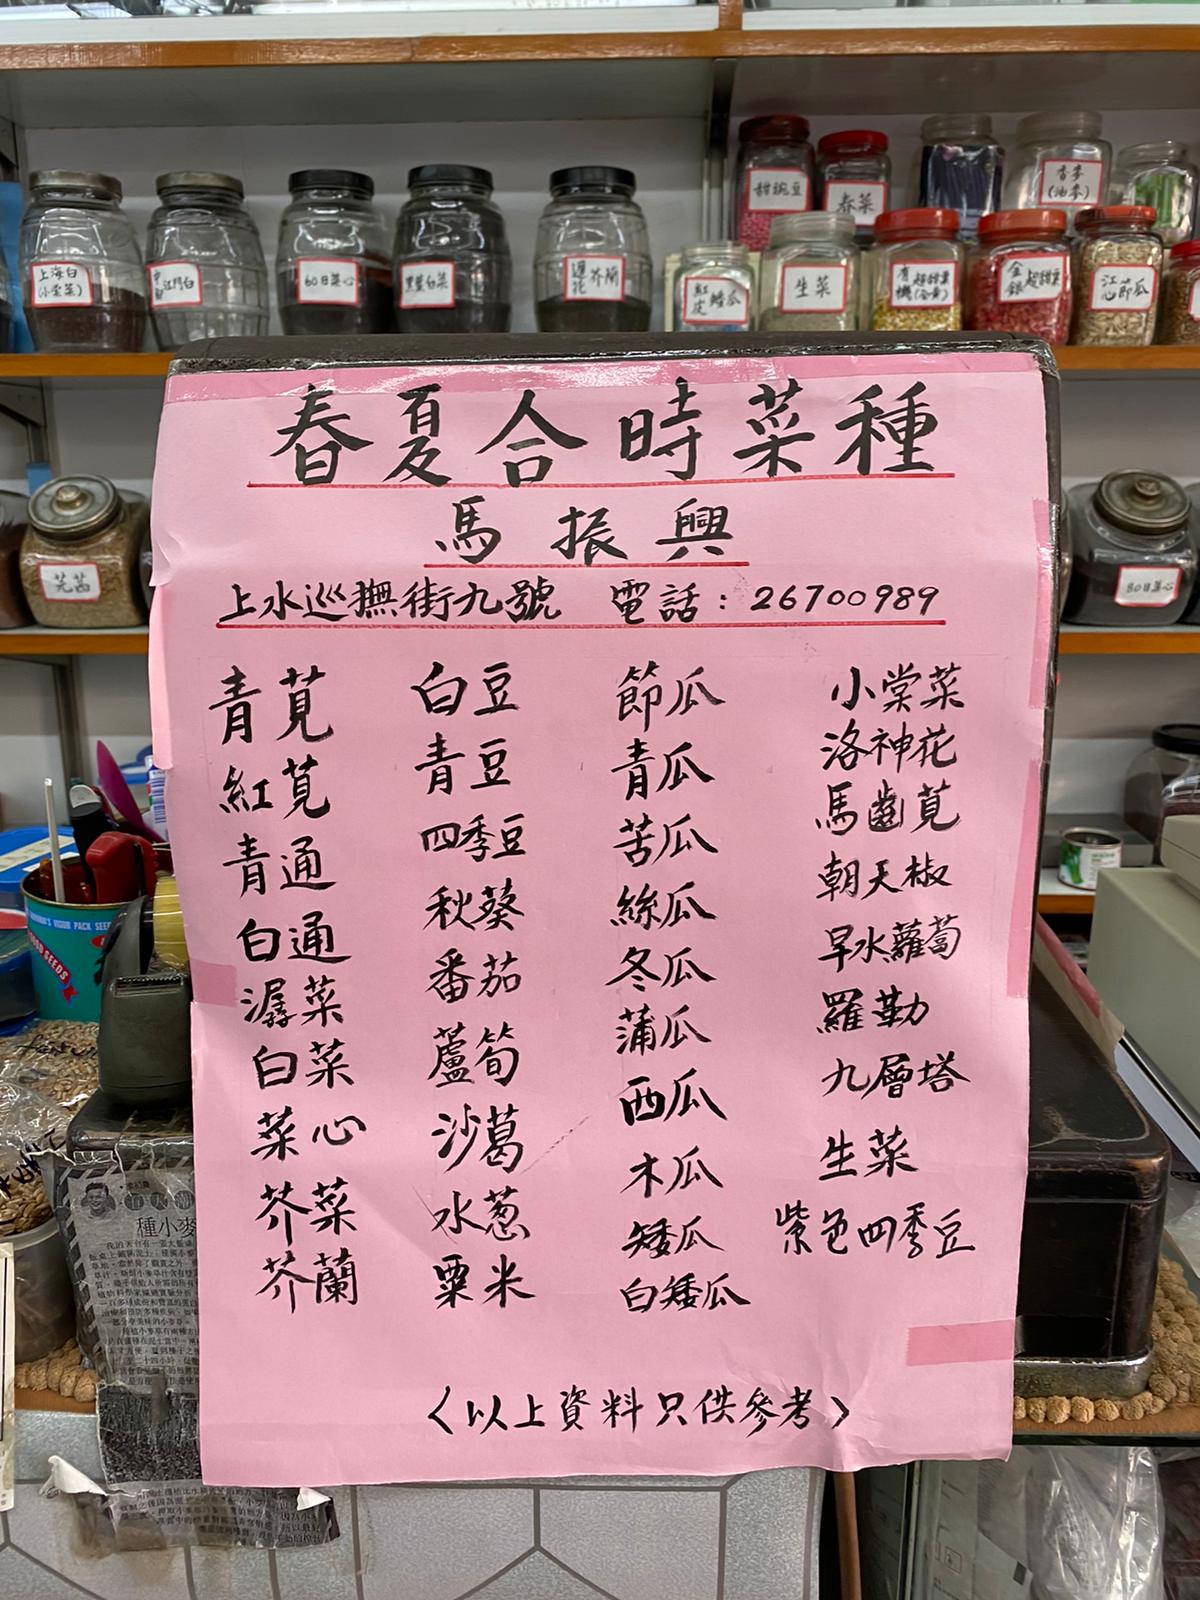 上海白
(小棠菜)
江門白
60日菜心
黑葉白菜
遲花芥蘭
甜豌豆
春菜
香麥
(油麥)
紅皮矮瓜
生菜
有機超甜粟
(全黃)
金銀超甜粟
江心節瓜
芫茜
80日菜心
春夏合時菜種
馬振興
上水巡撫街九號 電話：26700989
青莧
紅莧
青通
白通
潺菜
白菜
菜心
芥菜
芥蘭
白豆
青豆
四季豆
秋葵
番茄
蘆筍
沙葛
水葱
粟米
節瓜
青瓜
苦瓜
絲瓜
冬瓜
蒲瓜
西瓜
木瓜
矮瓜
白矮瓜
小棠菜
洛神花
馬齒莧
朝天椒
早水蘿蔔
羅勒
九層塔
生菜
紫色四季豆
〈以上資料只供參考〉
種小麥